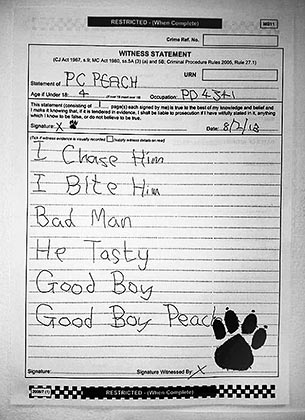 RESTRICTED - (When Complete)
MG11
Crime Ref. No.
WITNESS STATEMENT
(CJ Act 1967, s.9; MC Act 1980, ss.5A (3) (a) and 5B; Criminal Procedure Rules 2005, Rule 27.1)
URN
Statement of PC PEACH
Age if Under 18: 4 (if over 18 insert over 18) Occupation: PD 4341
This statement (consisting of 1 page(s) each signed by me) is true to the best of my knowledge and belief and
I make it knowing that, if it is tendered in evidence, I shall be liable to prosecution if I have wilfully stated in it, anything
which I know to be false, or do not believe to be true.
Signature: X Date: 8/2/13
(Tick if witness evidence is visually recorded (supply witness details on rear)
I Chase Him
I Bite Him
Bad Man
He Tasty
Good Boy
Good Boy Peach
Signature: Signature Witnessed By: X
RESTRICTED - (When Complete)